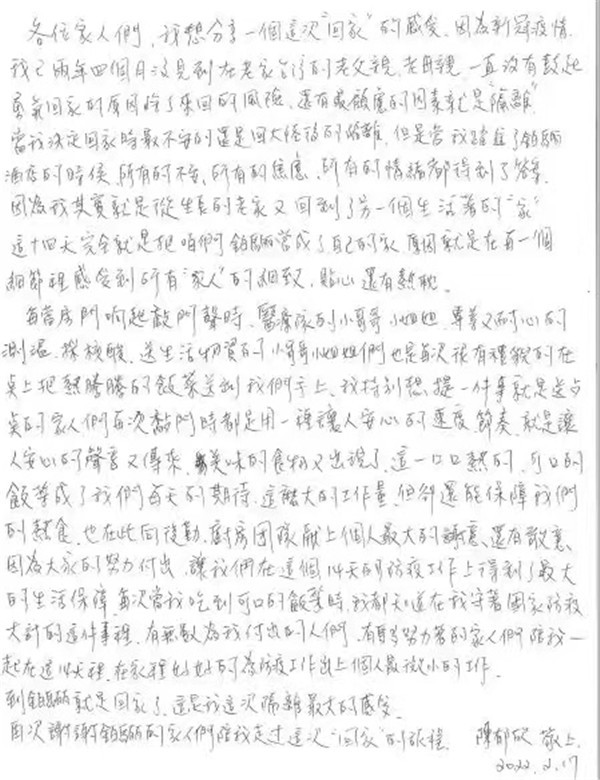 各位家人們，我想分享一個這次“回家”的感受，因為新冠疫情
我已兩年四個月沒見到在老家台灣的老父親、老母親。一直沒有鼓起
勇氣回家的原因除了來回的風險，還有最顧慮的因素就是“隔離”
當我決定回家時最不安的還是回大陸後的隔離，但是當我踏進了鉑驪
酒店的時候，所有的不安、所有的焦慮、所有的情緒都得到了答案
因為我其實就是從生長的老家又回到了另一個生活著的“家”
這十四天完全就是把咱們鉑驪當成了自己的家，原因就是在每一個
細節裡感受到所有“家人”的細致、貼心還有熱忱。
每當房門响起敲門聲時，醫療隊的小哥哥小姐姐，專業又耐心的
測溫、採核酸、送生活物資的小哥哥小姐姐們也是每次很有禮貌的在
桌上把熱騰騰的飯菜送到我們手上，我特別想提一件事就是送
的家人們每次敲門時都是用一種讓人安心的速度節奏，就是讓
人安心的聲音又傳來，美味的食物又出現了，這一口口熱的、可口的
飯菜成了我們每天的期待，這龐大的工作量，但卻還能保障我們
的熱食，也在此向後勤、廚房團隊獻上個人最大的謝意、還有敬意、
因為大家的努力付出，讓我們在這個14天的防疫工作上得到了最大
的生活保障 每次當我吃到可口的飯菜時，我都知道在我守著國家防疫
大計的這件事裡，有無數為我付出的人們，有努力著的家人們陪我一
起在這14天裡，在家裡好好的為防疫工作出上個人最微小的工作。
到鉑驪就是回家了，這是我這次隔離最大的感受。
再次謝謝鉑驪的家人們陪我走過這次“回家”的旅程。 陳郁欣 敬上
2022.2.17